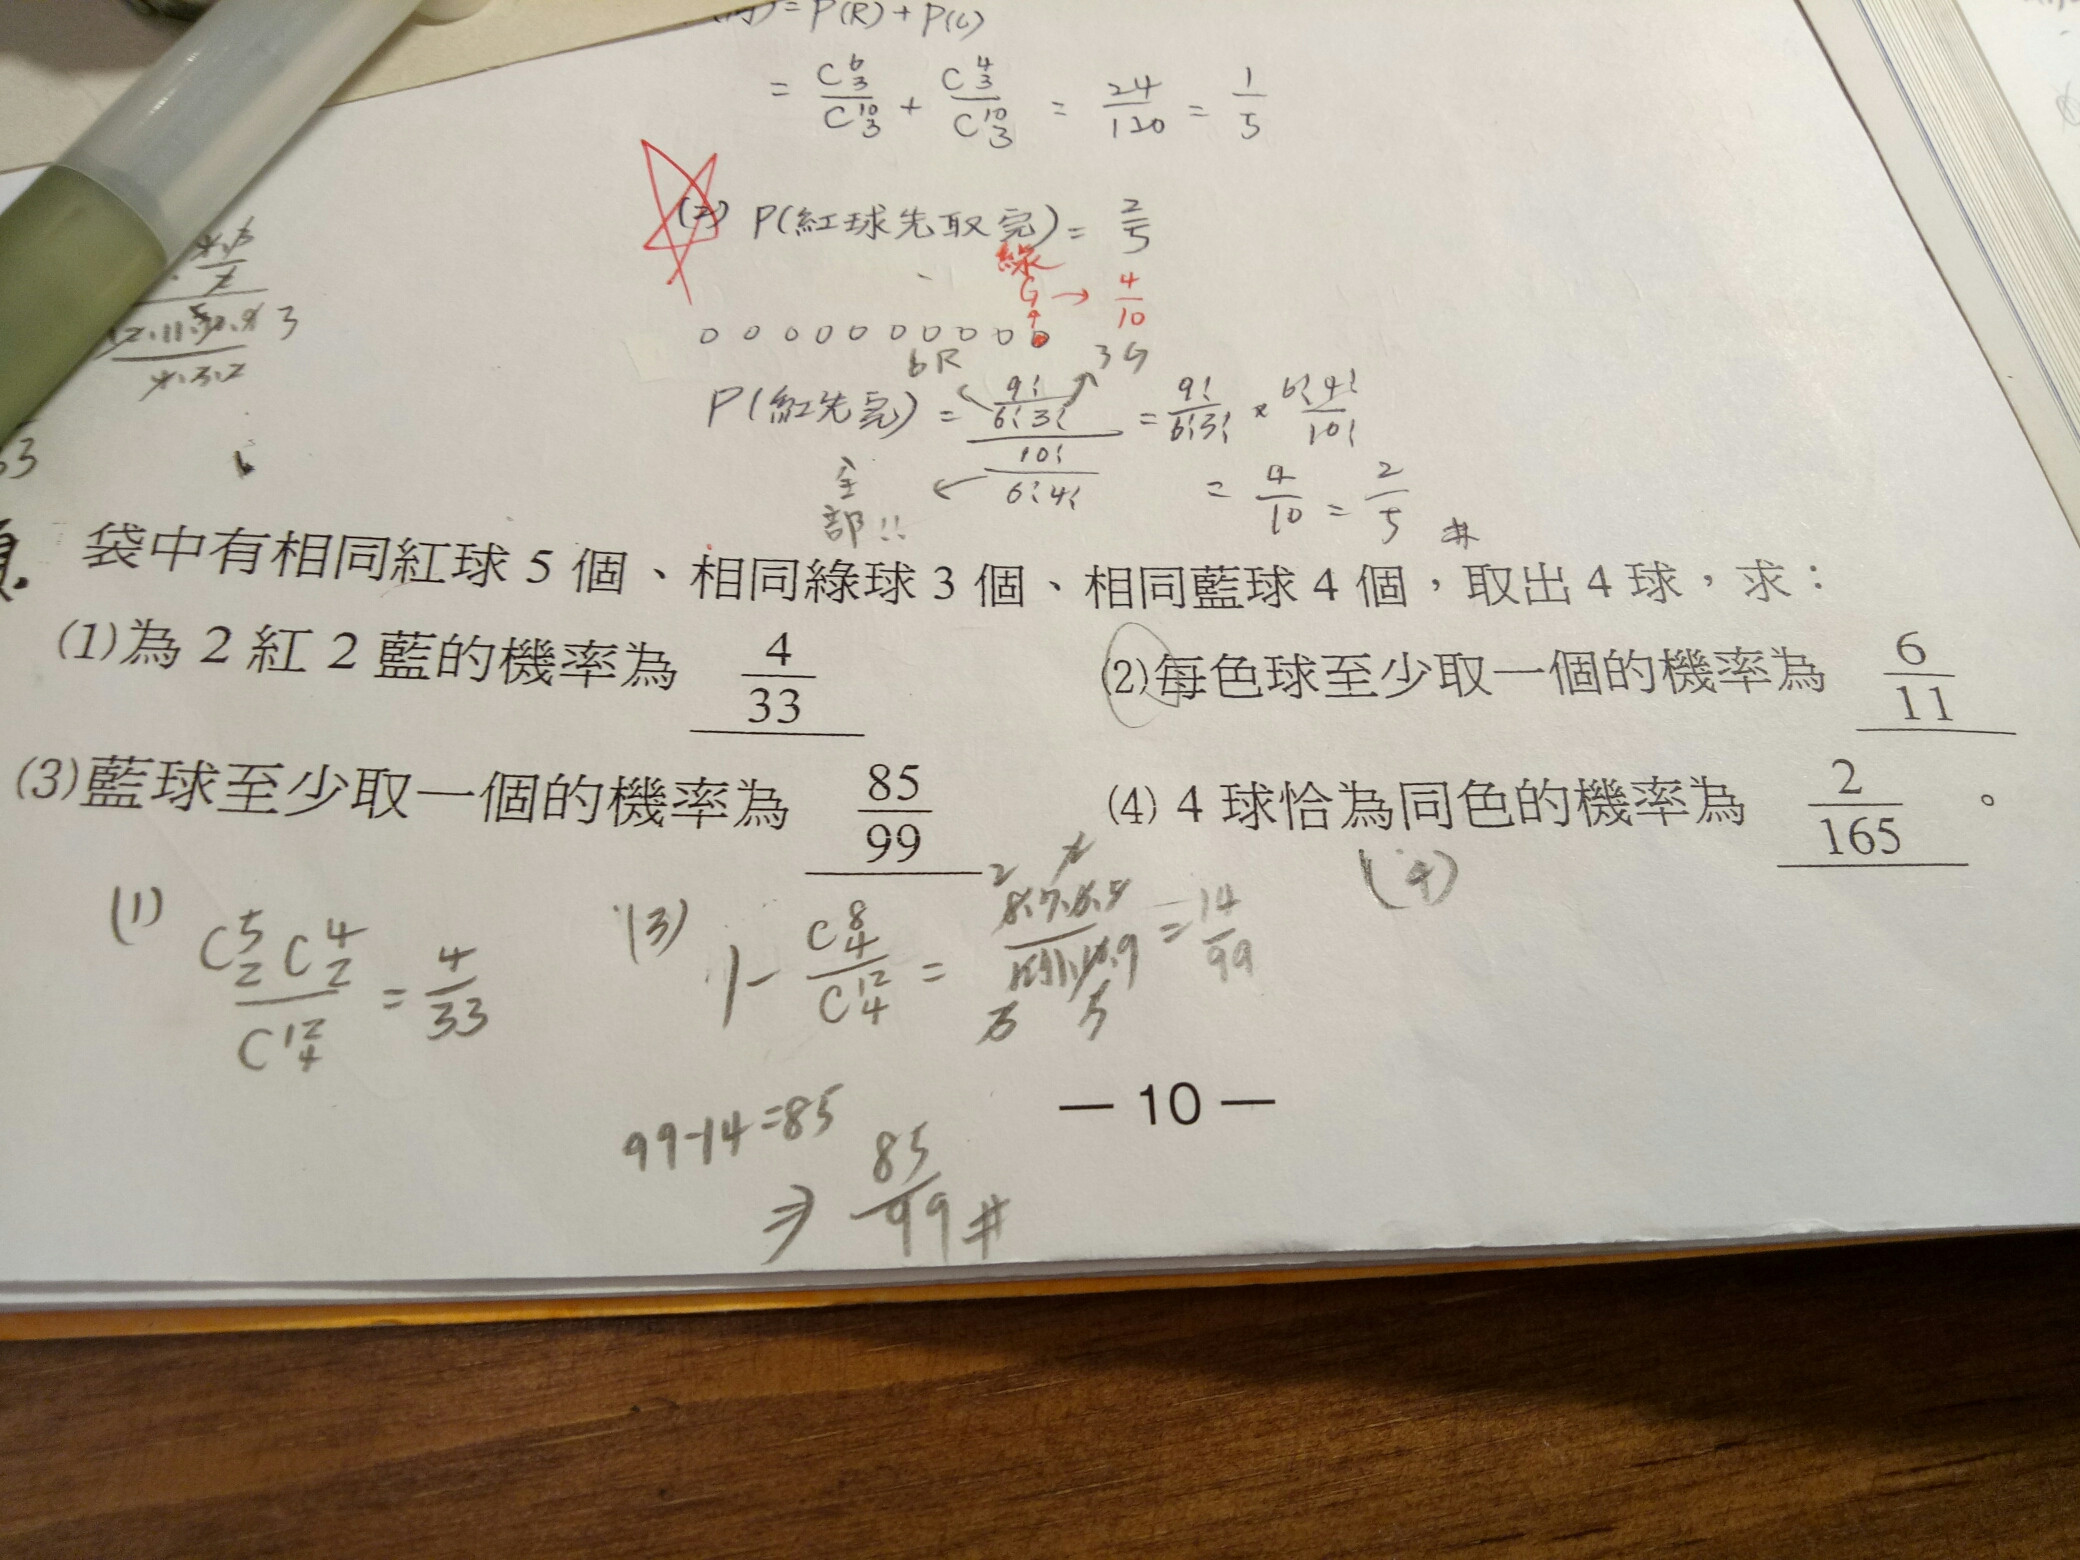 = P(R) + P(G)
= C⁶₃/C¹⁰₃ + C⁴₃/C¹⁰₃ = 24/120 = 1/5
P(紅球先取完) = 2/5
綠
G → 4/10
0 0 0 0 0 0 0 0 0
6R 3G
P(紅先完) = (9!/6!3!)/(10!/6!4!) = 9!/6!3! × 6!4!/10!
全部!! = 4/10 = 2/5 #
12.11.10.9 3
4.3.2
33
袋中有相同紅球 5 個、相同綠球 3 個、相同藍球 4 個，取出 4 球，求：
(1)為 2 紅 2 藍的機率為 4/33
(2)每色球至少取一個的機率為 6/11
(3)藍球至少取一個的機率為 85/99
(4) 4 球恰為同色的機率為 2/165 。
(1) C⁵₂C⁴₂/C¹²₄ = 4/33
(3) 1 - C⁸₄/C¹²₄ = 8.7.6.5/12.11.10.9 = 14/99
(4)
99-14=85
⇒ 85/99 #
— 10 —